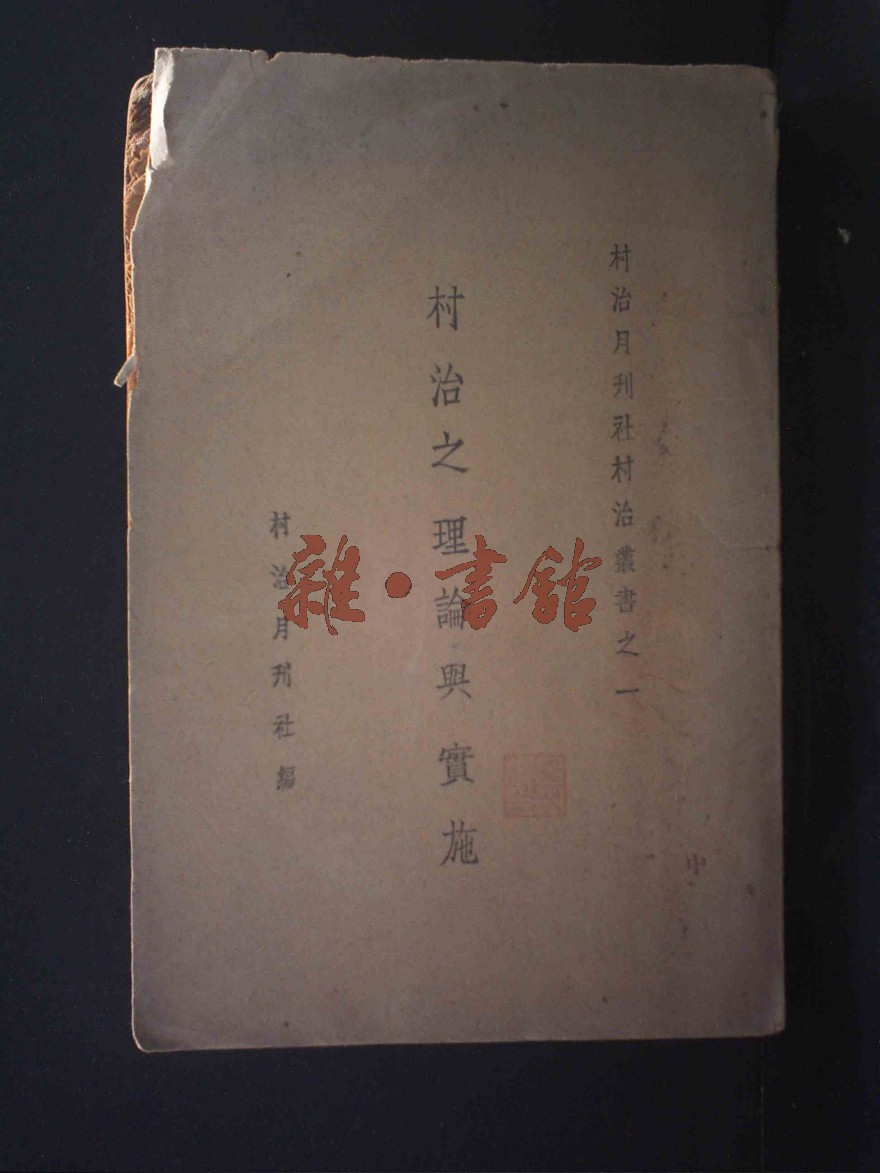 村治月刊社村治叢書之一
村治之理論與實施
村治月刊社編
雜·書館
中